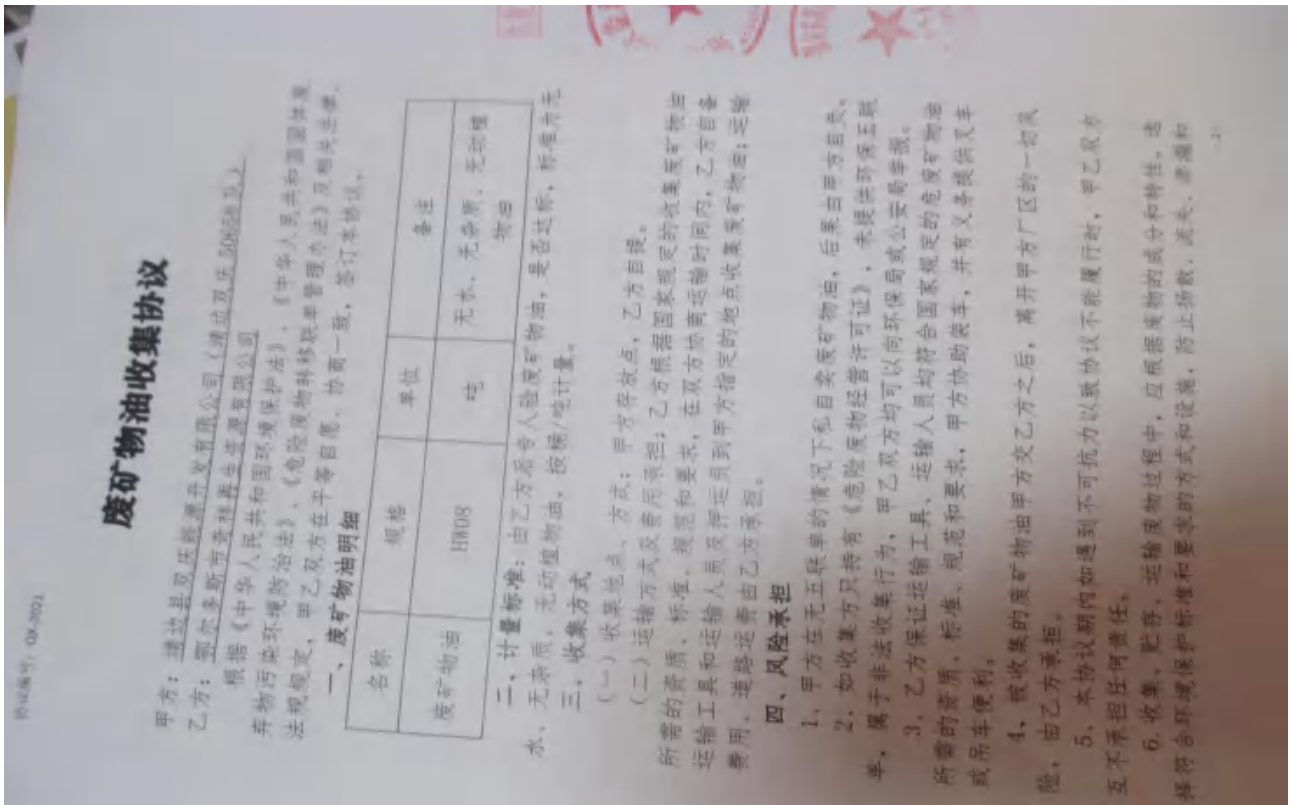 协议编号：QX-2021
废矿物油收集协议
甲方：靖边县双庆能源开发有限公司（靖边双庆50658队）
乙方：鄂尔多斯市奇祥再生资源有限公司
根据《中华人民共和国环境保护法》、《中华人民共和国固体废
弃物污染环境防治法》、《危险废物转移联单管理办法》及相关法律、
法规规定，甲乙双方在平等自愿、协商一致，签订本协议。
一、废矿物油明细
名称 规格 单位 备注
废矿物油 HW08 吨 无水、无杂质、无动植
物油
二、计量标准：由乙方派专人验废矿物油，是否达标，标准为无
水、无杂质，无动植物油，按桶/吨计量。
三、收集方式
（一）收集地点、方式：甲方存放点，乙方自提。
（二）运输方式及费用承担：乙方根据国家规定的收集废矿物油
所需的资质、标准、规范和要求，在双方协商运输时间内，乙方自备
运输工具和运输人员及押运员到甲方指定的地点收集废矿物油；运输
费用、道路运费由乙方承担。
四、风险承担
1、甲方在无五联单的情况下私自卖废矿物油，后果由甲方自负。
2、如收集方只持有《危险废物经营许可证》，未提供环保五联
单，属于非法收集行为，甲乙双方均可以向环保局或公安局举报。
3、乙方保证运输工具、运输人员均符合国家规定的危废矿物油
所需的资质、标准、规范和要求，甲方协助装车，并有义务提供叉车
或吊车便利。
4、被收集的废矿物油甲方交乙方之后，离开甲方厂区的一切风
险，由乙方承担。
5、本协议期内如遇到不可抗力以致协议不能履行时，甲乙双方
互不承担任何责任。
6.收集、贮存、运输废物过程中，应根据废物的成分和特性，选
择符合环境保护标准和要求的方式和设施，防止扬散、流失、渗漏和